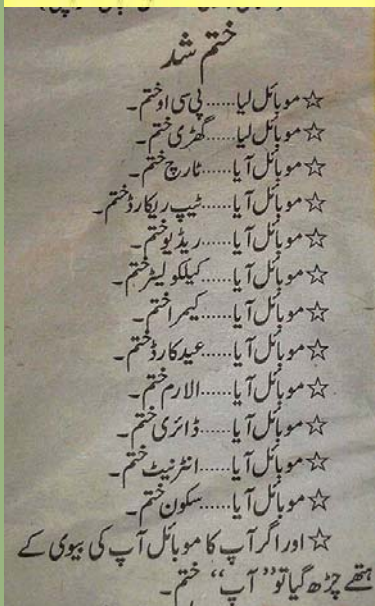 ختم شد
☆ موبائل لیا......پی سی او ختم۔
☆ موبائل لیا......گھڑی ختم۔
☆ موبائل آیا......ٹارچ ختم۔
☆ موبائل آیا......ٹیپ ریکارڈ ختم۔
☆ موبائل آیا......ریڈیو ختم۔
☆ موبائل آیا......کیلکولیٹر ختم۔
☆ موبائل آیا......کیمرا ختم۔
☆ موبائل آیا......عید کارڈ ختم۔
☆ موبائل آیا......الارم ختم۔
☆ موبائل آیا......ڈائری ختم۔
☆ موبائل آیا......انٹرنیٹ ختم۔
☆ موبائل آیا......سکون ختم۔
☆ اور اگر آپ کا موبائل آپ کی بیوی کے
ہتھے چڑھ گیا تو ’’آپ‘‘ ختم۔